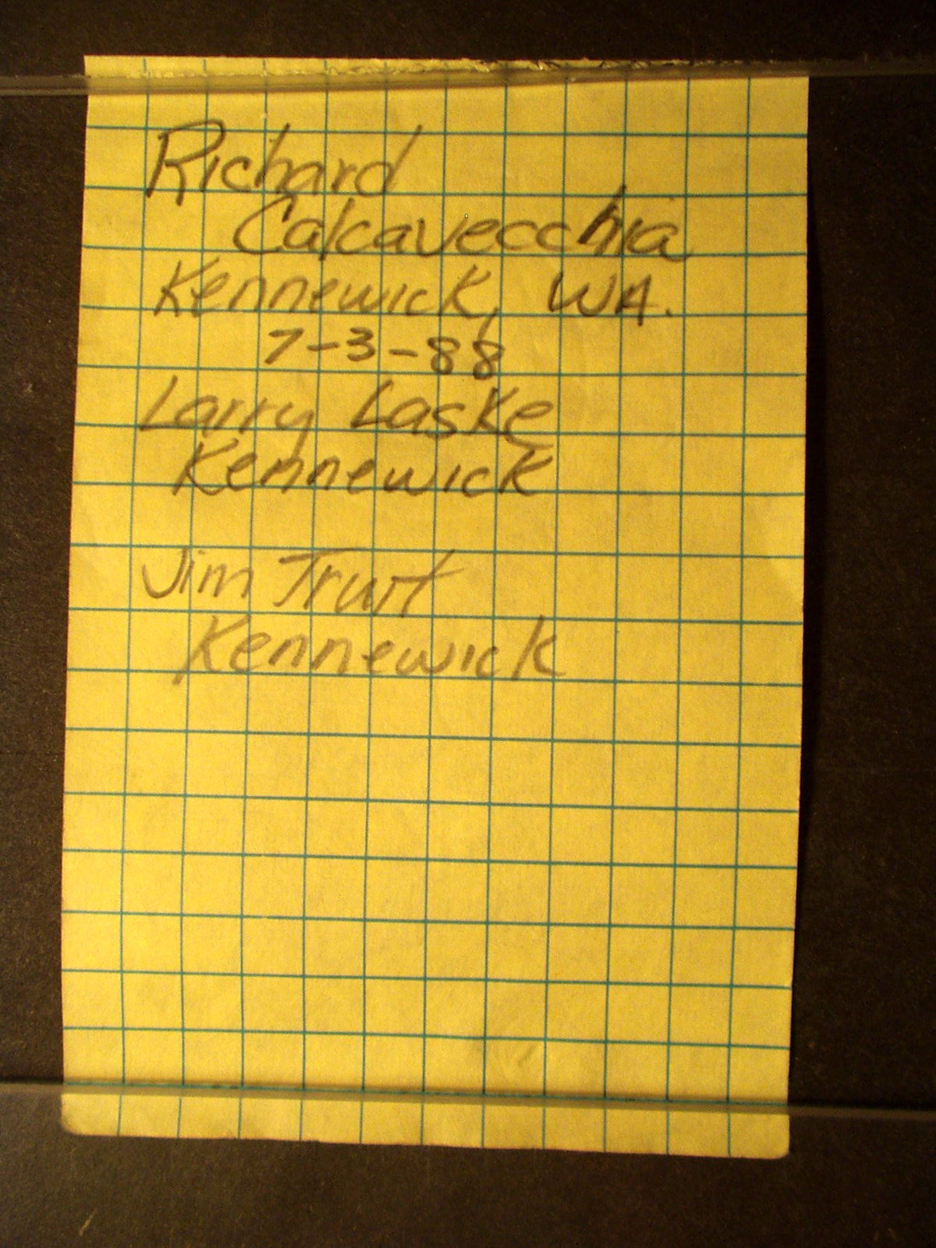 Richard
Calcavecchia
Kennewick, WA.
7-3-88
Larry Laske
Kennewick
Jim
Kennewick